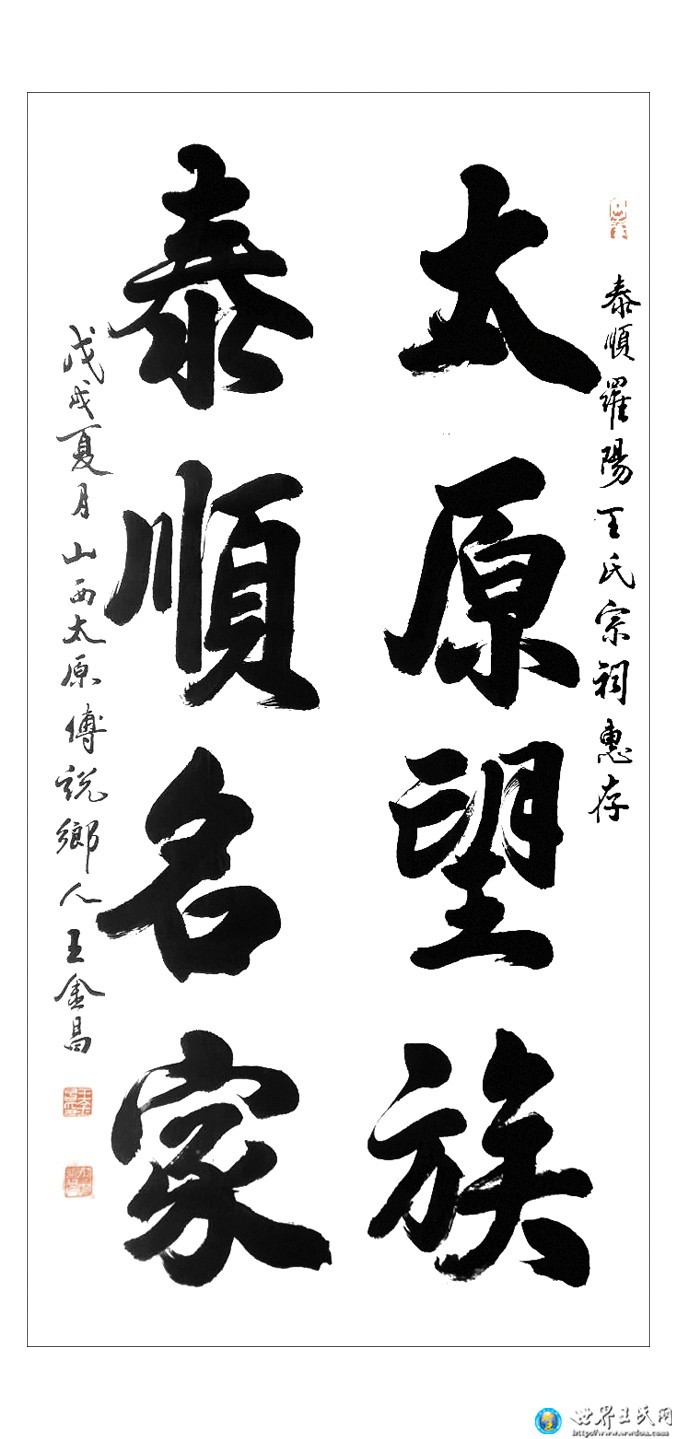 泰順羅陽王氏宗祠惠存
太原望族
泰順名家
戊戌夏月山西太原傅說鄉人王金昌
世界王氏网
http://www.wwdoa.com/